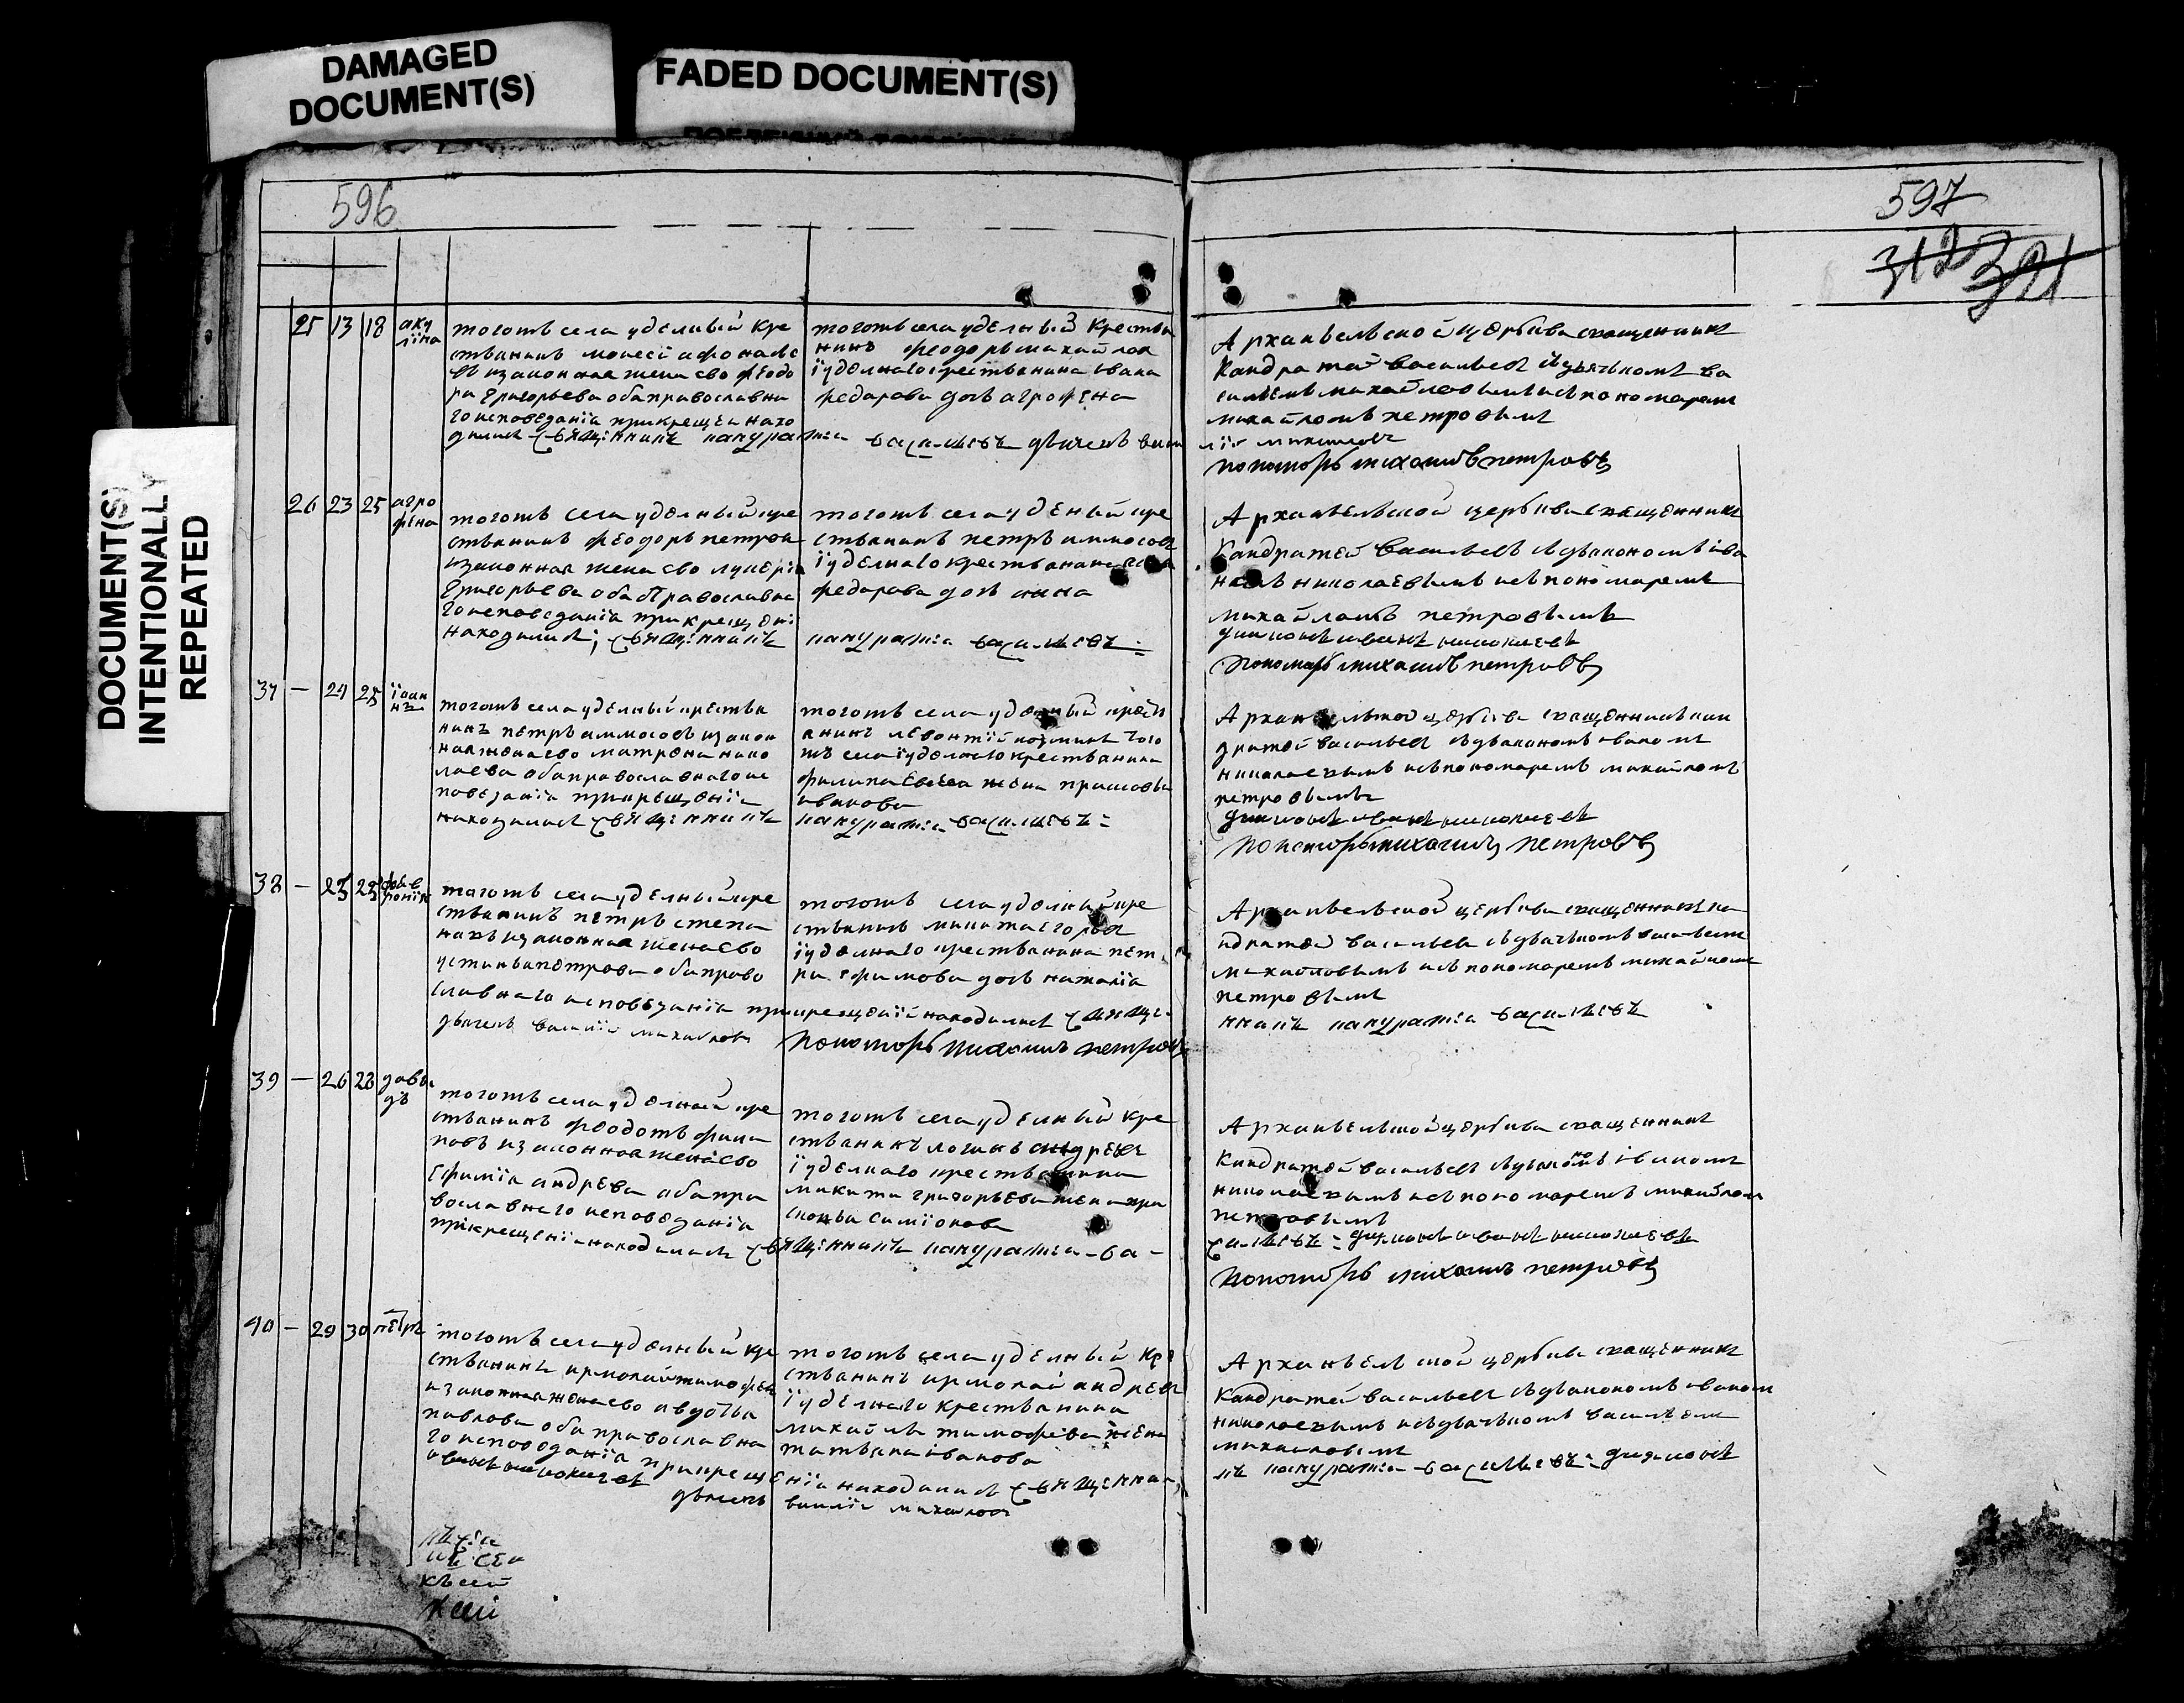 DAMAGED
DOCUMENT(S)
FADED DOCUMENT(S)
DOCUMENT(S)
INTENTIONALLY
REPEATED
596
597
312 321
25 13 18 аку
ліна
тогожъ села уделный кре
стьянинъ моисей афонасе
въ изаконная жена ево феодо
ра григорьева обаправославна
го исповеданія прикрещеніи нахо
дились священникъ кандратій васильевъ дьячекъ васи
тогожъ села уделный крестья
нинъ феодоръ михайлов
іуделнаго крестьянина ивана
федорова дочь агрофена
Архангельской церкви священникъ
Кандратей васильевъ съдьячкомъ ва
сильемъ михайловымъ исъпономаремъ
михайломъ петровымъ
лій михайловъ
пономорь михаилъ петровъ
26 23 25 агро
фена
тогожъ села уделный кре
стьянинъ феодоръ петров
изаконная жена ево лукеріа
григорьева оба православна
го исповеданіа при крещеніи
находились; священникъ кандратій васильевъ
тогожъ села уделный кре
стьянинъ петръ аммосов
іуделнаго крестьянина
федорова дочь анна
Архангельской церкви священникъ
Кандратей васильевъ съдьякономъ ива
номъ николаевымъ исъпономаремъ
михайломъ петровымъ
диаконъ иванъ николаевъ
пономарь михаилъ петровъ
37 — 24 25 іоан
нъ
тогожъ села уделный крестья
нинъ петръ аммосовъ изакон
ная жена ево матрена нико
лаева обаправославнаго ис
поведаніа прикрещеніи
находились священникъ кандратій васильевъ
тогожъ села уделный крестья
янинъ левонтій козминъ того
жъ села іуделнаго крестьянина
филипа жена прасковья
иванова
Архангельской церкви священникъ кан
дратей васильевъ съдьякономъ иваномъ
николаевымъ исъпономаремъ михайломъ
петровымъ
диаконъ иванъ николаевъ
пономорь михаилъ петровъ
38 — 25 25 фев
роніа
тогожъ села уделный кре
стьянинъ петръ степа
новъ изаконная жена ево
устинья петрова обаправо
славнаго исповеданіа прикрещеніи находились священ
дьячекъ василій михайловъ пономорь михаилъ петровъ
тогожъ села уделный кре
стьянинъ микита егоров
іуделнаго крестьянина пет
ра ефимова дочь наталіа
Архангельской церкви священникъ ка
ндратей васильевъ съдьячкомъ васильемъ
михайловымъ исъпономаремъ михайломъ
петровымъ
нникъ кандратій васильевъ
39 — 26 28 давы
дъ
тогожъ села уделной кре
стьянинъ феодотъ фила
повъ изаконная жена ево
ефиміа андрева обапра
вославнаго исповеданіа
прикрещеніи находились священникъ кандратій ва-
тогожъ села уделный кре
стьянинъ логинъ андреевъ
іуделнаго крестьянина
микиты григорьева жена пра
сковья симіонова
Архангельской церкви священникъ
Кандратей васильевъ съдьякономъ иваномъ
николаевымъ исъпономаремъ михайломъ
петровымъ
сильевъ диаконъ иванъ николаевъ
пономорь михаилъ петровъ
40 — 29 30 петръ
тогожъ села уделный кре
стьянинъ ермолай тимофеев
изаконная жена ево авдотья
павлова оба православна
го исповеданіа прикрещеніи находились священни
иванъ николаевъ
дьячекъ василій михайлов
тогожъ села уделный кре
стьянинъ ермолай андреев
іуделнаго крестьянина
михайлы тимофеева жена
татьяна іванова
Архангельской церкви священникъ
Кандратей васильевъ съдьякономъ иваном
николаевымъ исъдьячкомъ васильемъ
михайловымъ
къ кандратій васильевъ диаконъ